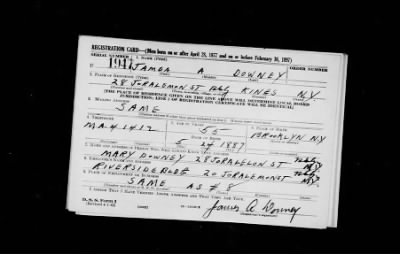 REGISTRATION CARD—(Men born on or after April 28, 1877 and on or before February 16, 1897)
SERIAL NUMBER 1. NAME (Print) ORDER NUMBER
U 1941 JAMES A DOWNEY
2. PLACE OF RESIDENCE (Print)
28 JORALEMON ST Bklyn KINGS N.Y.
[THE PLACE OF RESIDENCE GIVEN ON THE LINE ABOVE WILL DETERMINE LOCAL BOARD
JURISDICTION; LINE 2 OF REGISTRATION CERTIFICATE WILL BE IDENTICAL]
3. MAILING ADDRESS
SAME
4. TELEPHONE 5. AGE IN YEARS 6. PLACE OF BIRTH
MA4 1412 55 BROOKLYN NY
DATE OF BIRTH
1887
7. NAME AND ADDRESS OF PERSON WHO WILL ALWAYS KNOW YOUR ADDRESS
MARY DOWNEY 28 JORALEMON ST Bklyn NY
8. EMPLOYER'S NAME AND ADDRESS
RIVERSIDE BLDG 20 JORALEMON ST Bklyn NY
9. PLACE OF EMPLOYMENT OR BUSINESS
SAME AS #8
I AFFIRM THAT I HAVE VERIFIED ABOVE ANSWERS AND THAT THEY ARE TRUE.
D. S. S. Form 1
James A. Downey